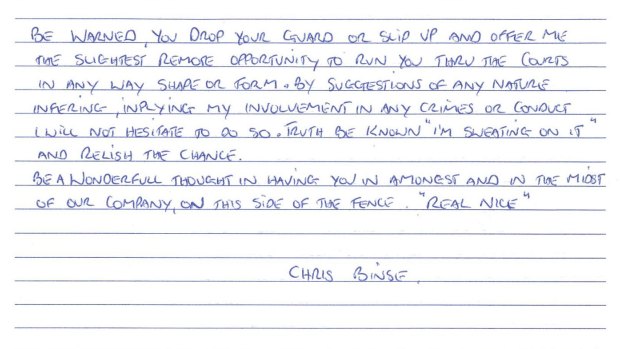 BE WARNED, YOU DROP YOUR GUARD OR SLIP UP AND OFFER ME
THE SLIGHTEST REMOTE OPPORTUNITY TO RUN YOU THRU THE COURTS
IN ANY WAY SHAPE OR FORM. BY SUGGESTIONS OF ANY NATURE
INFERING, INPLYING MY INVOLVEMENT IN ANY CRIMES OR CONDUCT
I WILL NOT HESITATE TO DO SO. TRUTH BE KNOWN "I'M SWEATING ON IT"
AND RELISH THE CHANCE.
BE A WONDERFULL THOUGHT IN HAVING YOU IN AMONGEST AND IN THE MIDST
OF OUR COMPANY, ON THIS SIDE OF THE FENCE. "REAL NICE"
CHRIS BINSE.